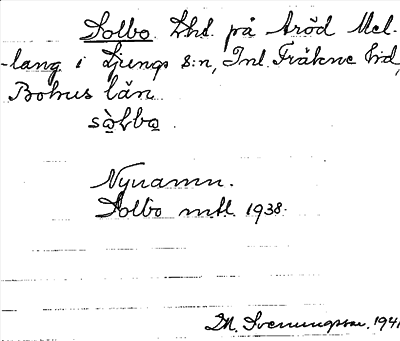 Solbo. Lht. på Aröd Mel-
lang i Ljungs s:n, Inl. Fräkne hd,
Bohus län.
sòlbo.
Nynamn.
Solbo mtl. 1938.
M. Svenungsson. 1941